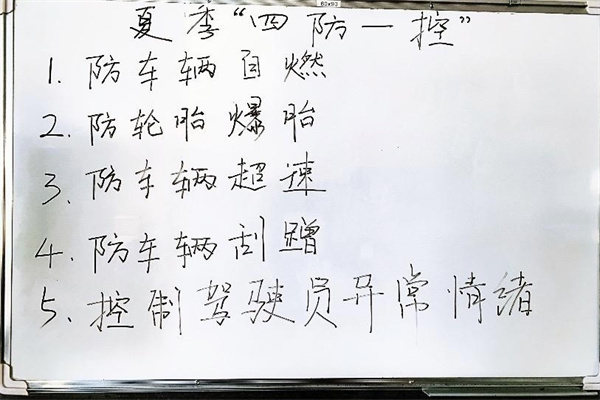 夏季“四防一控”
1. 防车辆自燃
2. 防轮胎爆胎
3. 防车辆超速
4. 防车辆刮蹭
5. 控制驾驶员异常情绪